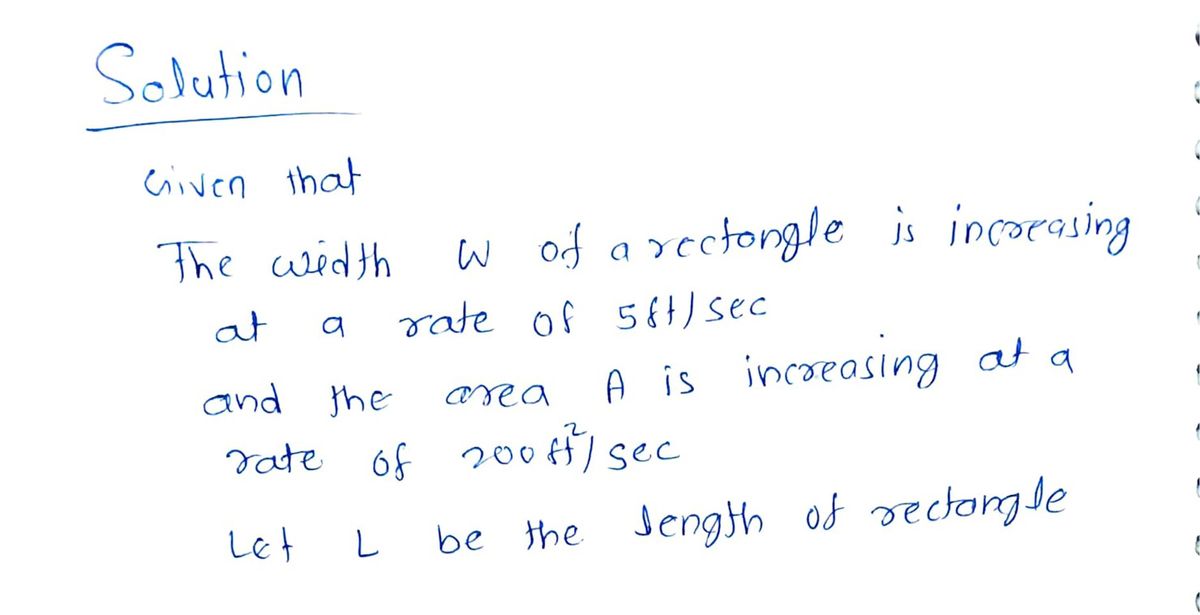 Solution
Given that
The width W of a rectongle is increasing
at a rate of 5ft/sec
and the area A is increasing at a
rate of 200ft²/sec
Let L be the length of rectongle